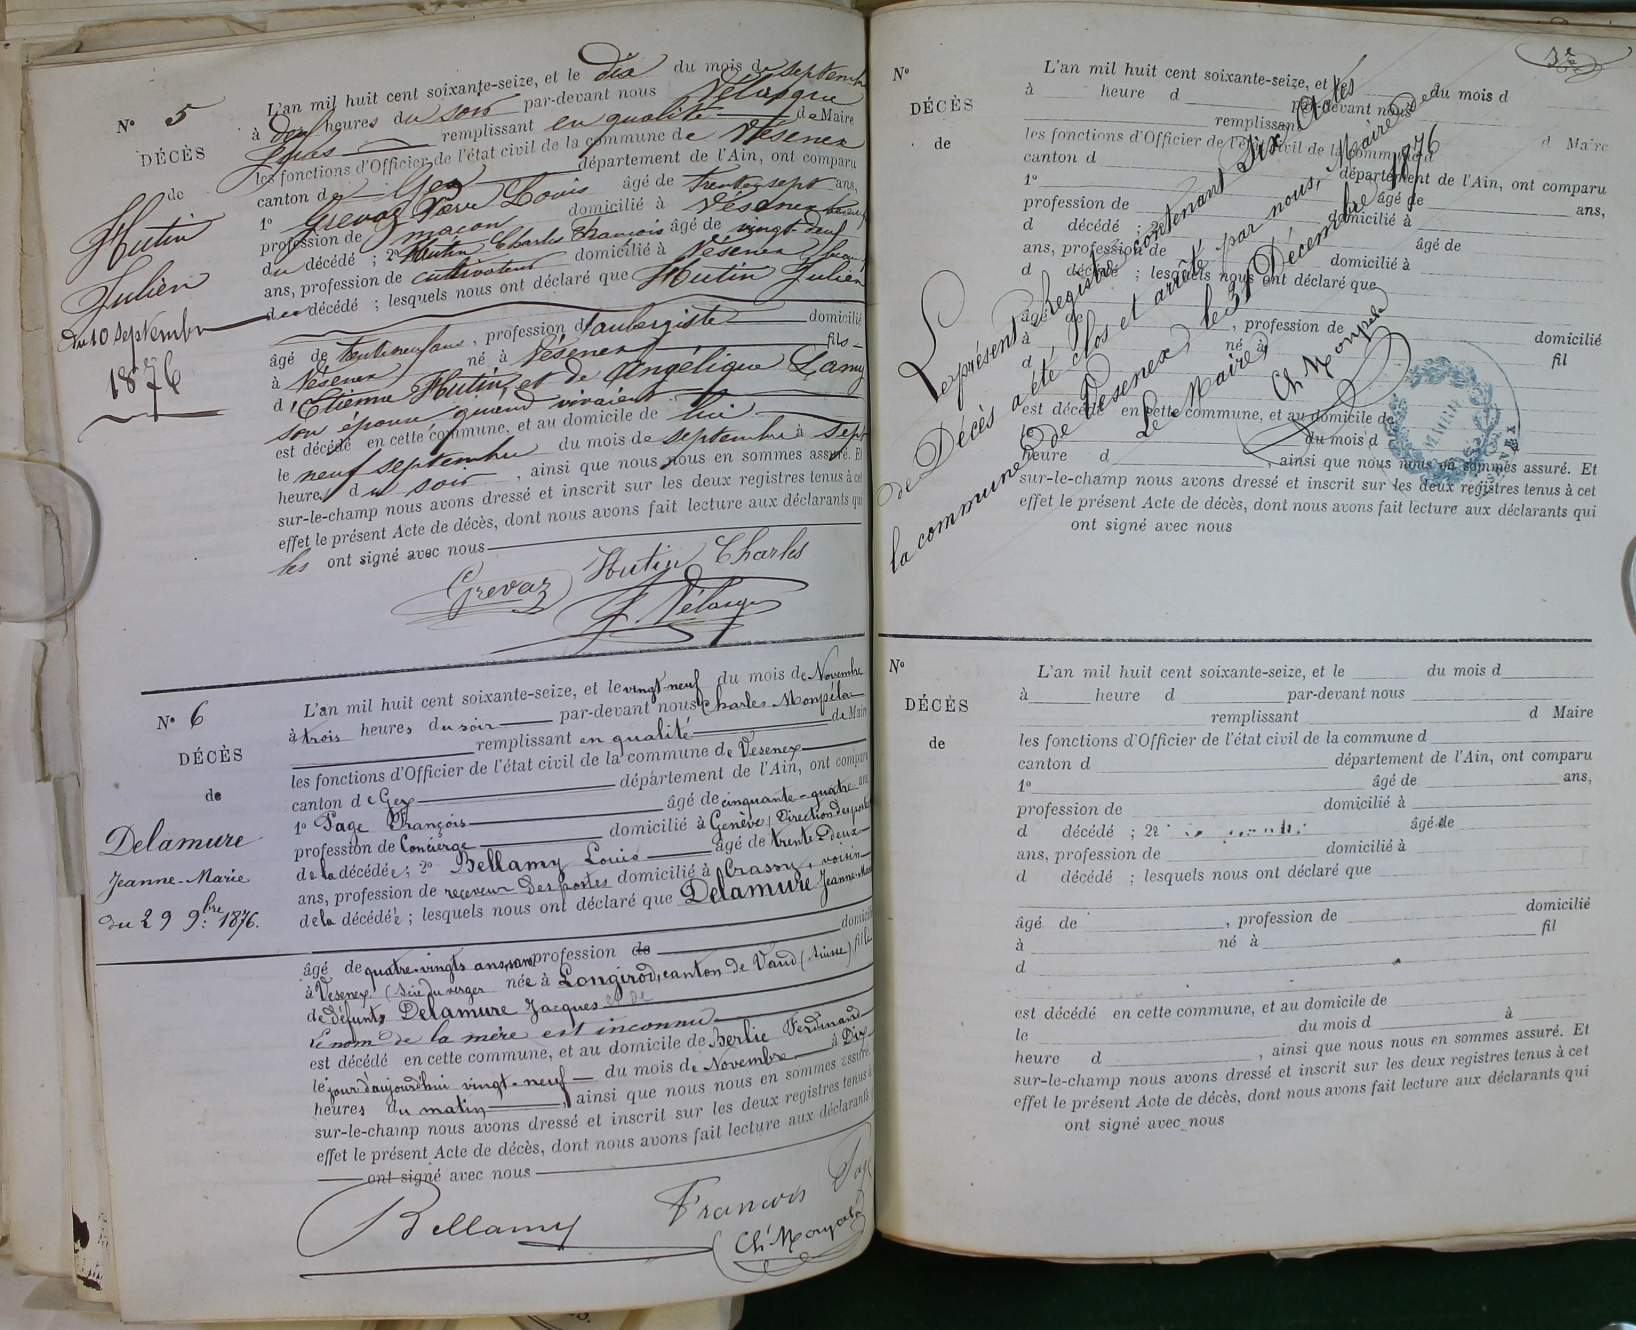 N° 5
DÉCÈS
de
Hutin
Julien
du 10 septembre
1876
L'an mil huit cent soixante-seize, et le dix du mois de septembre
à deux heures du soir par-devant nous Délarpru
Louis remplissant en qualité de Maire
les fonctions d'Officier de l'état civil de la commune de Vésenex
canton de Gex département de l'Ain, ont comparu
1° Grevaz Pierre Louis âgé de trente-sept ans,
profession de maçon domicilié à Vésenex
du décédé ; 2° Hutin Charles François âgé de vingt-deux
ans, profession de cultivateur domicilié à Vésenex
du décédé ; lesquels nous ont déclaré que Hutin Julien
âgé de trente neuf ans, profession d'aubergiste domicilié
à Vésenex né à Vésenex fils
d'Etienne Hutin, et de Angélique Lamy
son épouse quand vivaient
est décédé en cette commune, et au domicile de lui
le neuf septembre du mois de septembre à sept
heures du soir, ainsi que nous nous en sommes assuré. Et
sur-le-champ nous avons dressé et inscrit sur les deux registres tenus à cet
effet le présent Acte de décès, dont nous avons fait lecture aux déclarants qui
les ont signé avec nous
Grevaz Hutin Charles
N° 6
DÉCÈS
de
Delamure
Jeanne-Marie
du 29 9.bre 1876.
L'an mil huit cent soixante-seize, et le vingt-neuf du mois de Novembre
à trois heures du soir par-devant nous Charles Monpela
remplissant en qualité de Maire
les fonctions d'Officier de l'état civil de la commune de Vesenex
canton de Gex département de l'Ain, ont comparu
1° Page François âgé de cinquante-quatre ans
profession de Concierge domicilié à Genève (Direction des postes
de la décédée ; 2° Bellamy Louis âgé de trente-deux
ans, profession de receveur des postes domicilié à Crassy, voisin
de la décédée ; lesquels nous ont déclaré que Delamure Jeanne-Marie
âgé de quatre-vingts ans, sans profession de domicilié
à Vesenex (Scie du verger née à Longirod, canton de Vaud (Suisse) fille
de défunts Delamure Jacques et de
le nom de la mère est inconnu
est décédé en cette commune, et au domicile de Berlie Ferdinand
le jour d'aujourd'hui vingt-neuf du mois de Novembre à Dix
heures du matin, ainsi que nous nous en sommes assuré.
sur-le-champ nous avons dressé et inscrit sur les deux registres tenus à
effet le présent Acte de décès, dont nous avons fait lecture aux déclarants
ont signé avec nous
Bellamy François Page
Ch. Monpela
N°
DÉCÈS
de
L'an mil huit cent soixante-seize, et le du mois d
à heure d par-devant nous
remplissant d Maire
les fonctions d'Officier de l'état civil de la commune d
canton d département de l'Ain, ont comparu
1° âgé de ans,
profession de domicilié à
d décédé ; 2°
ans, profession de âgé de
d décédé ; lesquels nous ont déclaré que domicilié à
âgé de , profession de
à né à domicilié
d fil
est décédé en cette commune, et au domicile de
le du mois d
heure d , ainsi que nous nous en sommes assuré. Et
sur-le-champ nous avons dressé et inscrit sur les deux registres tenus à cet
effet le présent Acte de décès, dont nous avons fait lecture aux déclarants qui
ont signé avec nous
Le présent Registre contenant Six Actes
de Décès a été clos et arrêté par nous, Maire de
la commune de Vesenex, le 31 Décembre 1876
Le Maire,
Ch Monpela
MAIRIE
N°
DÉCÈS
de
L'an mil huit cent soixante-seize, et le du mois d
à heure d par-devant nous
remplissant d Maire
les fonctions d'Officier de l'état civil de la commune d
canton d département de l'Ain, ont comparu
1° âgé de ans,
profession de domicilié à
d décédé ; 2° âgé de
ans, profession de domicilié à
d décédé ; lesquels nous ont déclaré que
âgé de , profession de domicilié
à né à fil
d
est décédé en cette commune, et au domicile de
le du mois d à
heure d , ainsi que nous nous en sommes assuré. Et
sur-le-champ nous avons dressé et inscrit sur les deux registres tenus à cet
effet le présent Acte de décès, dont nous avons fait lecture aux déclarants qui
ont signé avec nous